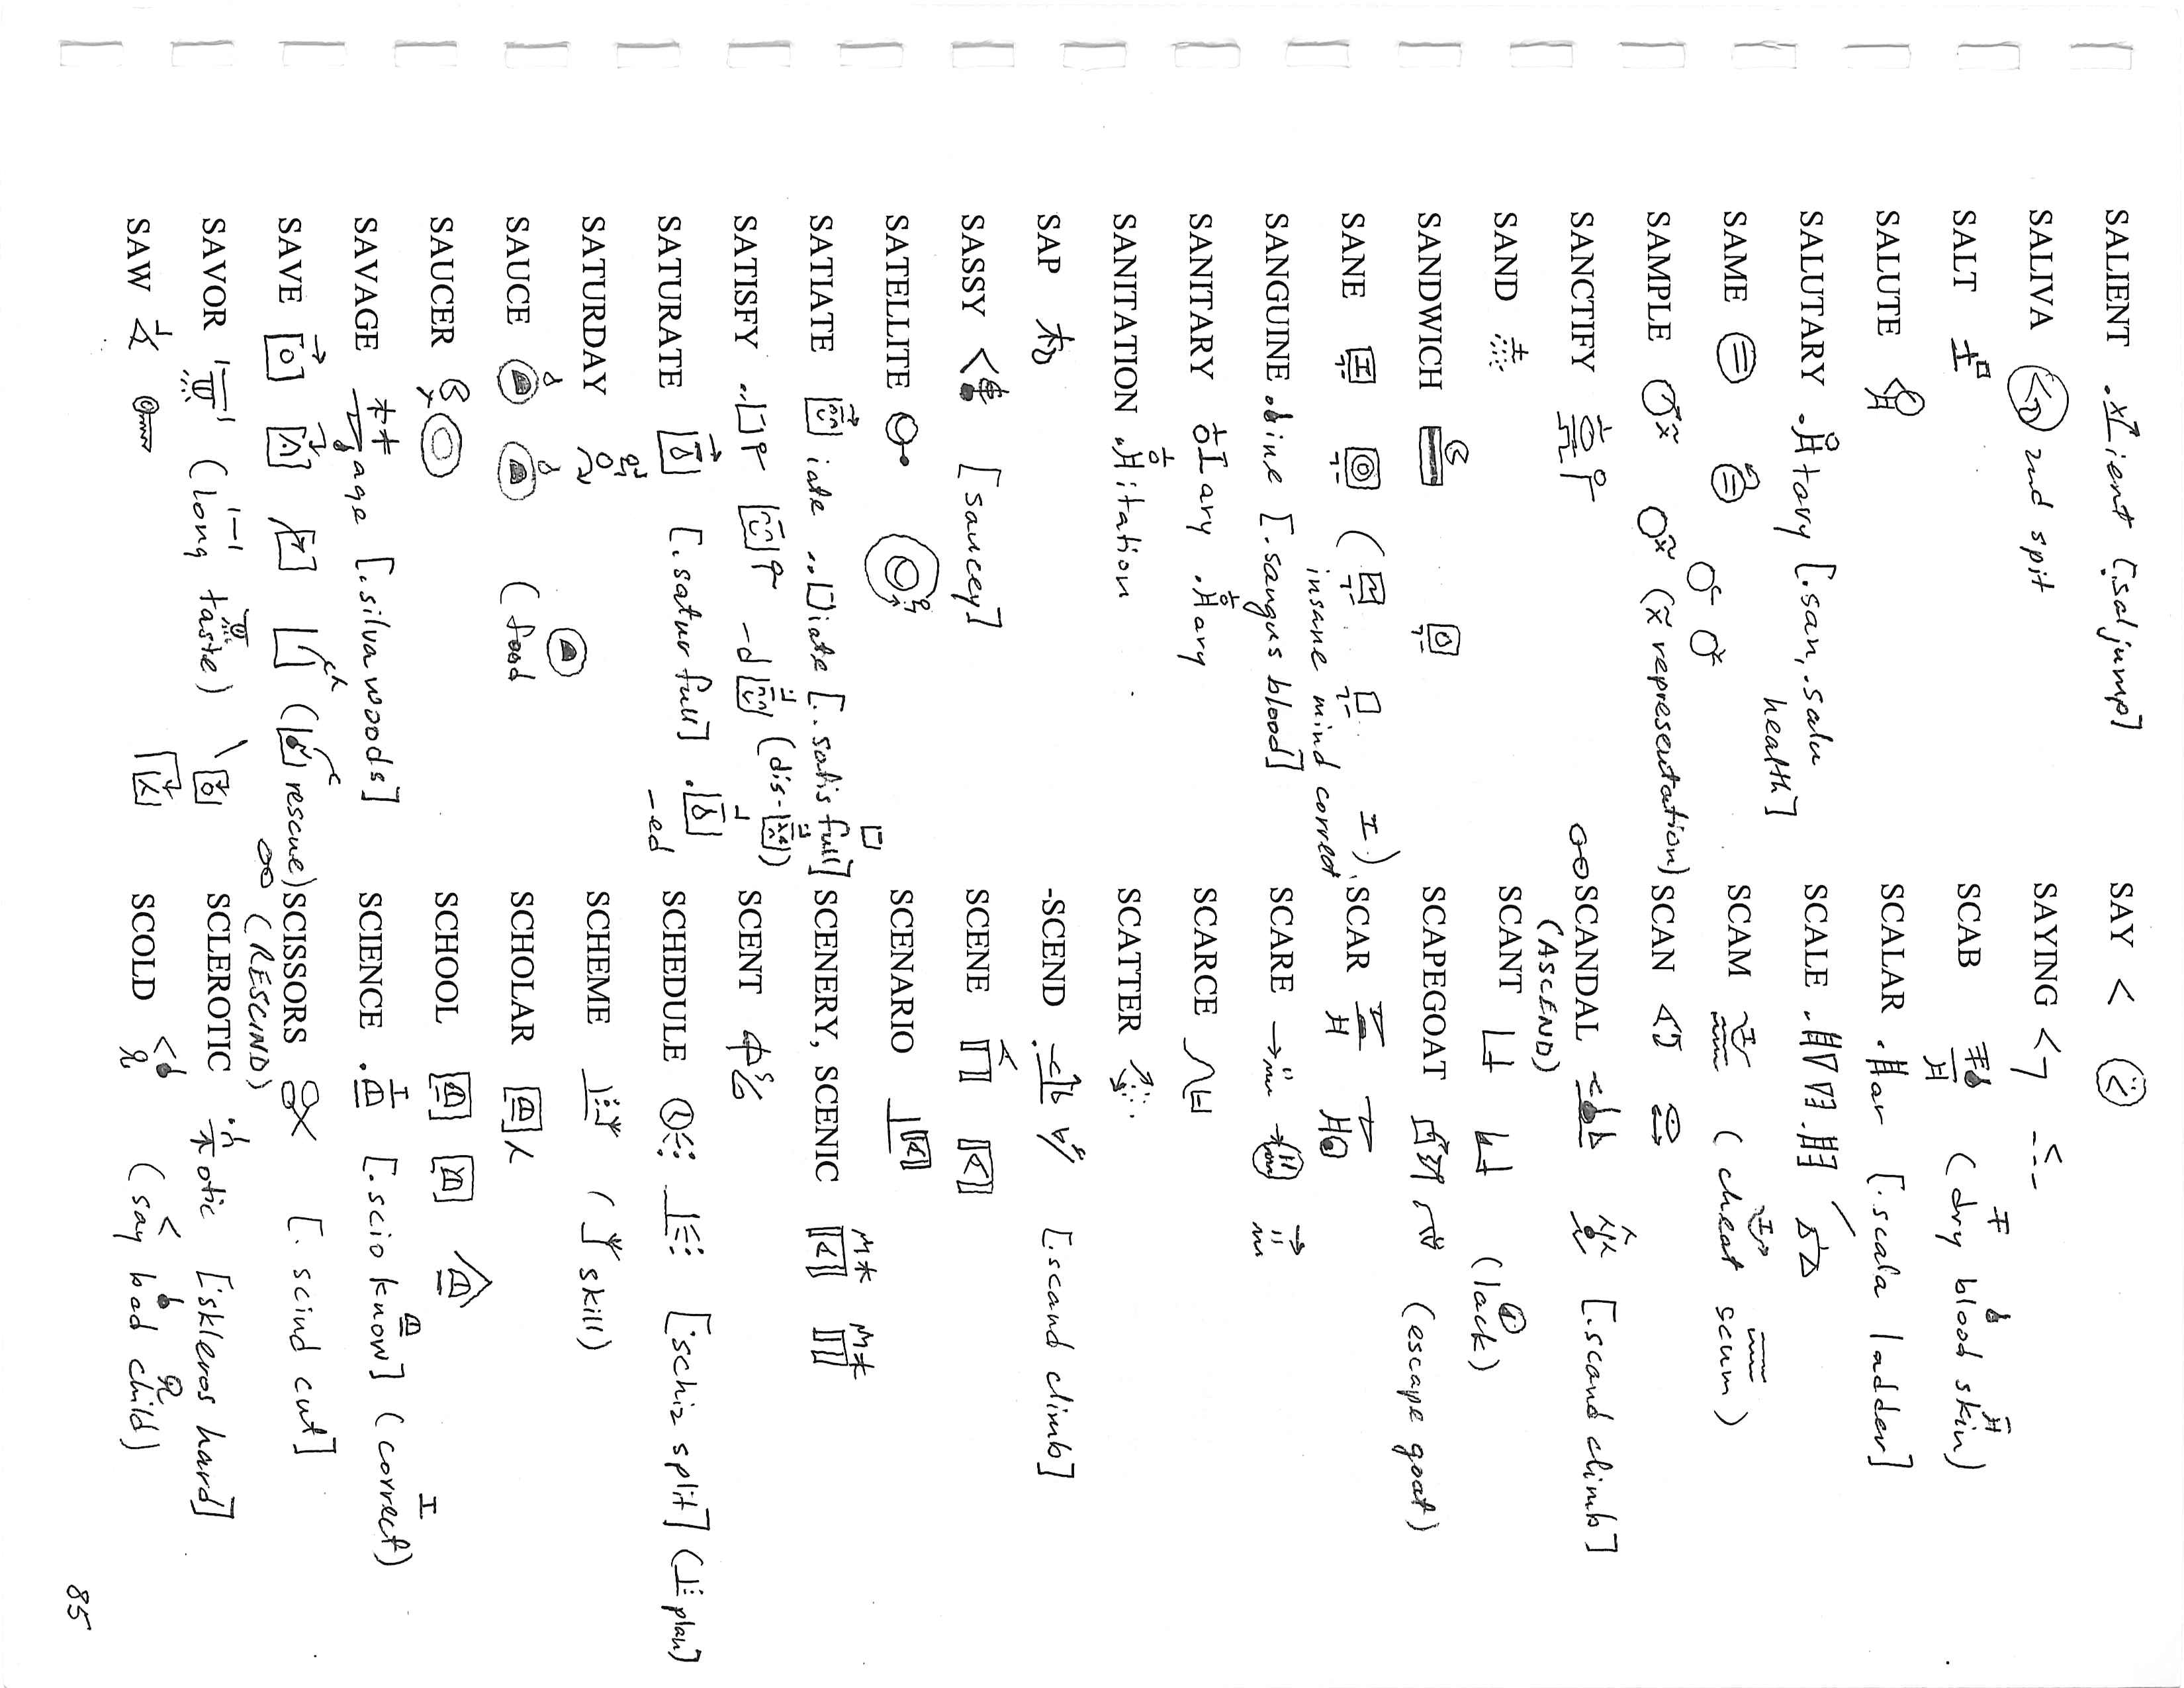 SALIENT . ient [.sal jump]
SALIVA 2nd spit
SALT
SALUTE
SALUTARY . tary [.san, .salu health]
SAME
SAMPLE (x̃ representation)
SANCTIFY
SAND
SANDWICH
SANE (insane mind correct)
SANGUINE . ine [.sangus blood]
SANITARY ary . ary
SANITATION . itation
SAP
SASSY [saucey]
SATELLITE
SATIATE iate .. iate [..satis full]
SATISFY .. -d (dis- )
SATURATE [.satur full] . -ed
SATURDAY
SAUCE (food
SAUCER
SAVAGE age [.silva woods]
SAVE ( rescue)
SAVOR (long taste)
SAW
SAY <
SAYING
SCAB (dry blood skin)
SCALAR . ar [.scala ladder]
SCALE
SCAM (cheat scum)
SCAN
SCANDAL [.scand climb]
(ASCEND)
SCANT (lack)
SCAPEGOAT (escape goat)
SCAR
SCARE
SCARCE
SCATTER
-SCEND [.scand climb]
SCENE
SCENARIO
SCENERY, SCENIC
SCENT
SCHEDULE [.schiz split] ( plan]
SCHEME ( skill)
SCHOLAR
SCHOOL
SCIENCE . [.scio know] (correct)
SCISSORS [.scind cut]
(RESCIND)
SCLEROTIC otic [skleros hard]
SCOLD (say bad child)
85